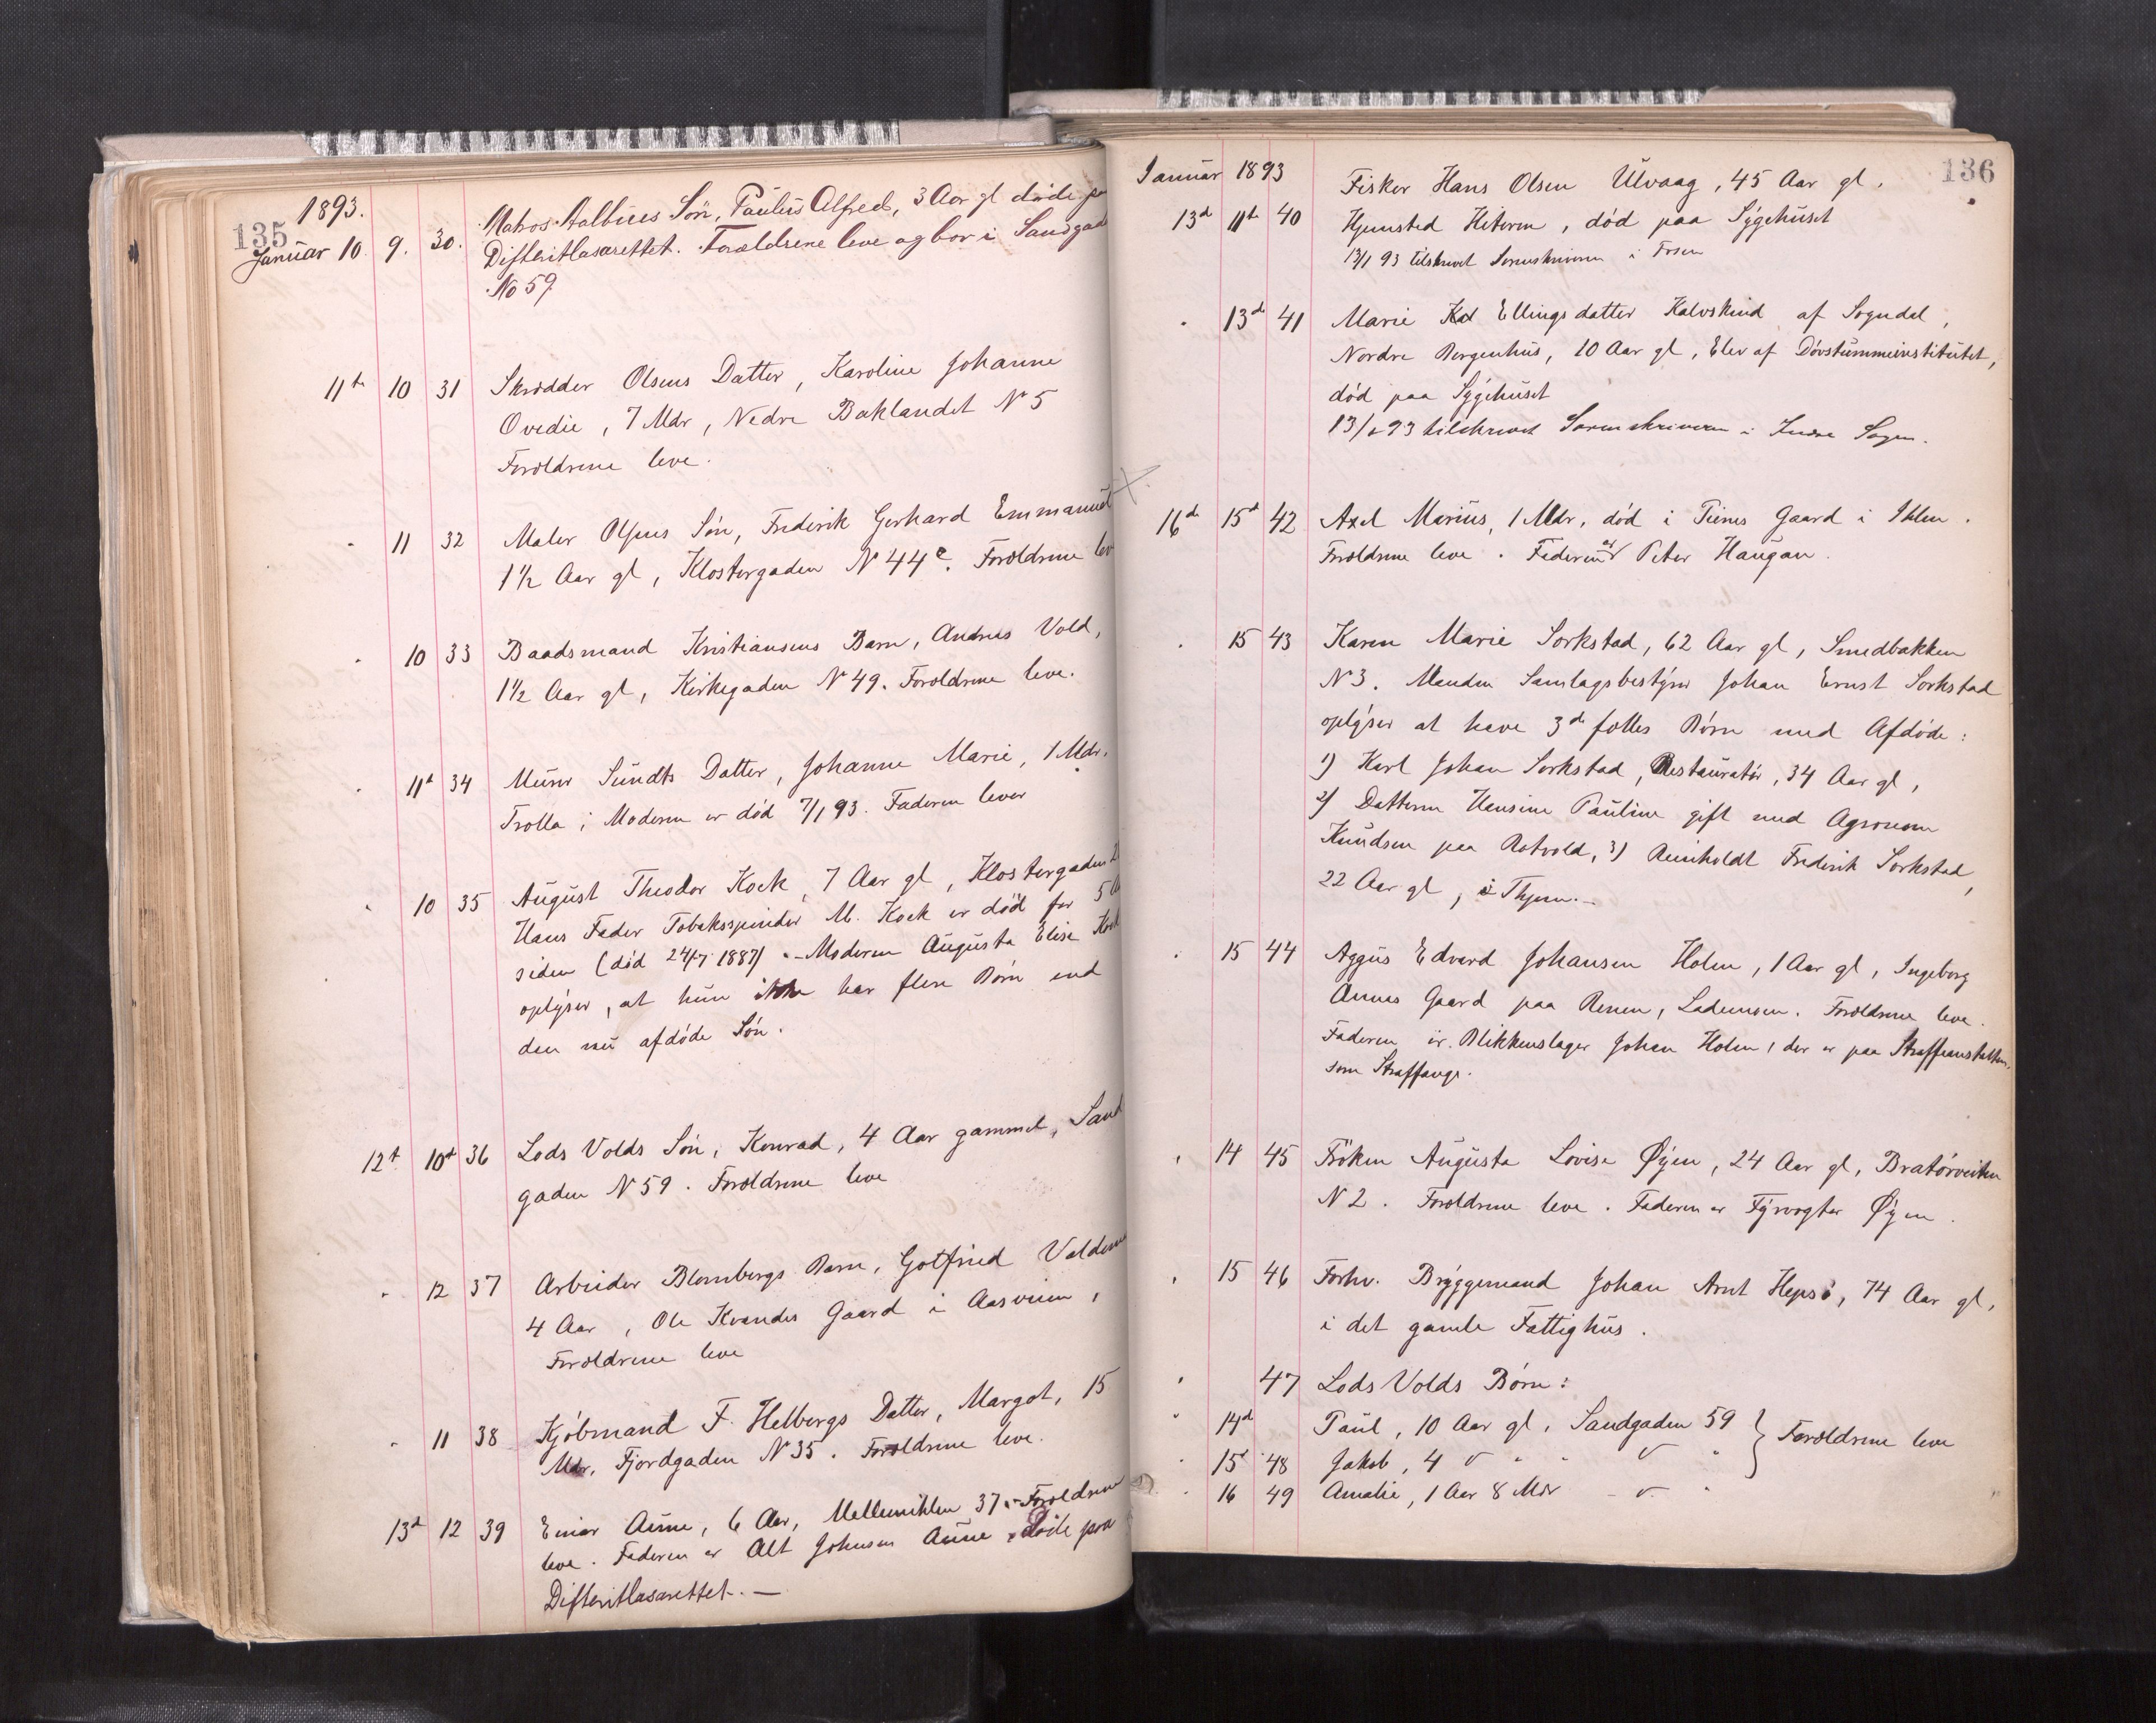 135
1893.
Januar 10. 9. 30. Matros Aalbues Søn, Paulus Alfred, 3 Aar gl døde pa
Difteritlasarettet. Forældrene leve og bor i Sandgad
No 59
11te 10 31 Skrædder Olsens Datter, Karoline Johanne
Ovedie, 7 Mdr, Nedre Baklandet N 5
Forældrene leve.
" 11 32 Maler Olsens Søn, Frederik Gerhard Emmanuel
1½ Aar gl, Klostergaden N 44 a. Forældrene lev
" 10 33 Baadsmand Kristiansens Barn, Andreas Vold,
1½ Aar gl, Kirkegaden N 49. Forældrene leve.
" 11t 34 Murer Sundts Datter, Johanne Marie, 1 Mdr.
Trolla; Moderen er død 7/1 93. Faderen lever
" 10 35 August Theodor Kock, 7 Aar gl, Klostergaden 2
Hans Fader Tobaksspinder M. Kock er død for 5 A
siden (død 24/7 1887). – Moderen Augusta Elise Kock
oplyser, at hun ikke har flere Børn end
den nu afdøde Søn.
12t 10t 36 Lods Volds Søn, Konrad, 4 Aar gammel, Sand
gaden N 59. Forældrene leve
" 12 37 Arbeider Blombergs Barn, Gotfried Valdema
4 Aar, Ole Kvandes Gaard i Aasveien,
Forældrene leve
" 11 38 Kjøbmand F. Helbergs Datter, Margot, 15
Mdr, Fjordgaden N 35. Forældrene leve.
13d 12 39 Einar Aune, 6 Aar, Mellemihlen 37. – Forældrene
leve. Faderen er Alt Johnsen Aune, døde paa
Difteritlasarettet. —
136
Januar 1893
13d 11te 40 Fisker Hans Olsen Ulvaag, 45 Aar gl.
Hjemsted Hiteren, død paa Sygehuset
13/1 93 tilskrevet Sorenskriveren i Fosen
" 13d 41 Marie Kat Ellingsdatter Kalvskind af Sogndal,
Nordre Bergenhus, 20 Aar gl, Elev af Døvstummeinstitutet,
død paa Sygehuset
13/1 93 tilskrevet Sorenskriveren i Indre Sogn.
16d 15d 42 Axel Marius, 1 Mdr, død i Tienes Gaard i Ihlen.
Forældrene leve. Faderen er Peter Haugan.
" 15 43 Karen Marie Sorkstad, 62 Aar gl, Smedbakken
N 3. Manden Samlagsbestyrer Johan Ernst Sorkstad
oplyser at have 3de fælles Børn med Afdøde:
1) Karl Johan Sorkstad, Restauratør, 34 Aar gl,
2) Datteren Hansine Pauline gift med Agronom
Knudsen paa Rotvold, 3) Reinholdt Frederik Sorkstad,
22 Aar gl, i Thjem. –
" 15 44 Aggus Edvard Johansen Holm, 1 Aar gl, Ingeborg
Aunes Gaard paa Renen, Lademoen. Forældrene leve.
Faderen er Blikkenslager Johan Holm, der er paa Straffeanstalten,
som Straffange.
" 14 45 Frøken Augusta Lovise Øyen, 24 Aar gl, Bratørveiten
N 2. Forældrene leve. Faderen er Fyrvogter Øyen.
" 15 46 Forhv. Bryggemand Johan Arnt Hepsø, 74 Aar gl,
i det gamle Fattighus.
" 47 Lods Volds Børn:
" 14d Paul, 10 Aar gl, Sandgaden 59 } Forældrene leve
" 15d 48 Jakob, 4 " " " "
" 16 49 Amalie, 1 Aar 8 Mdr – " "